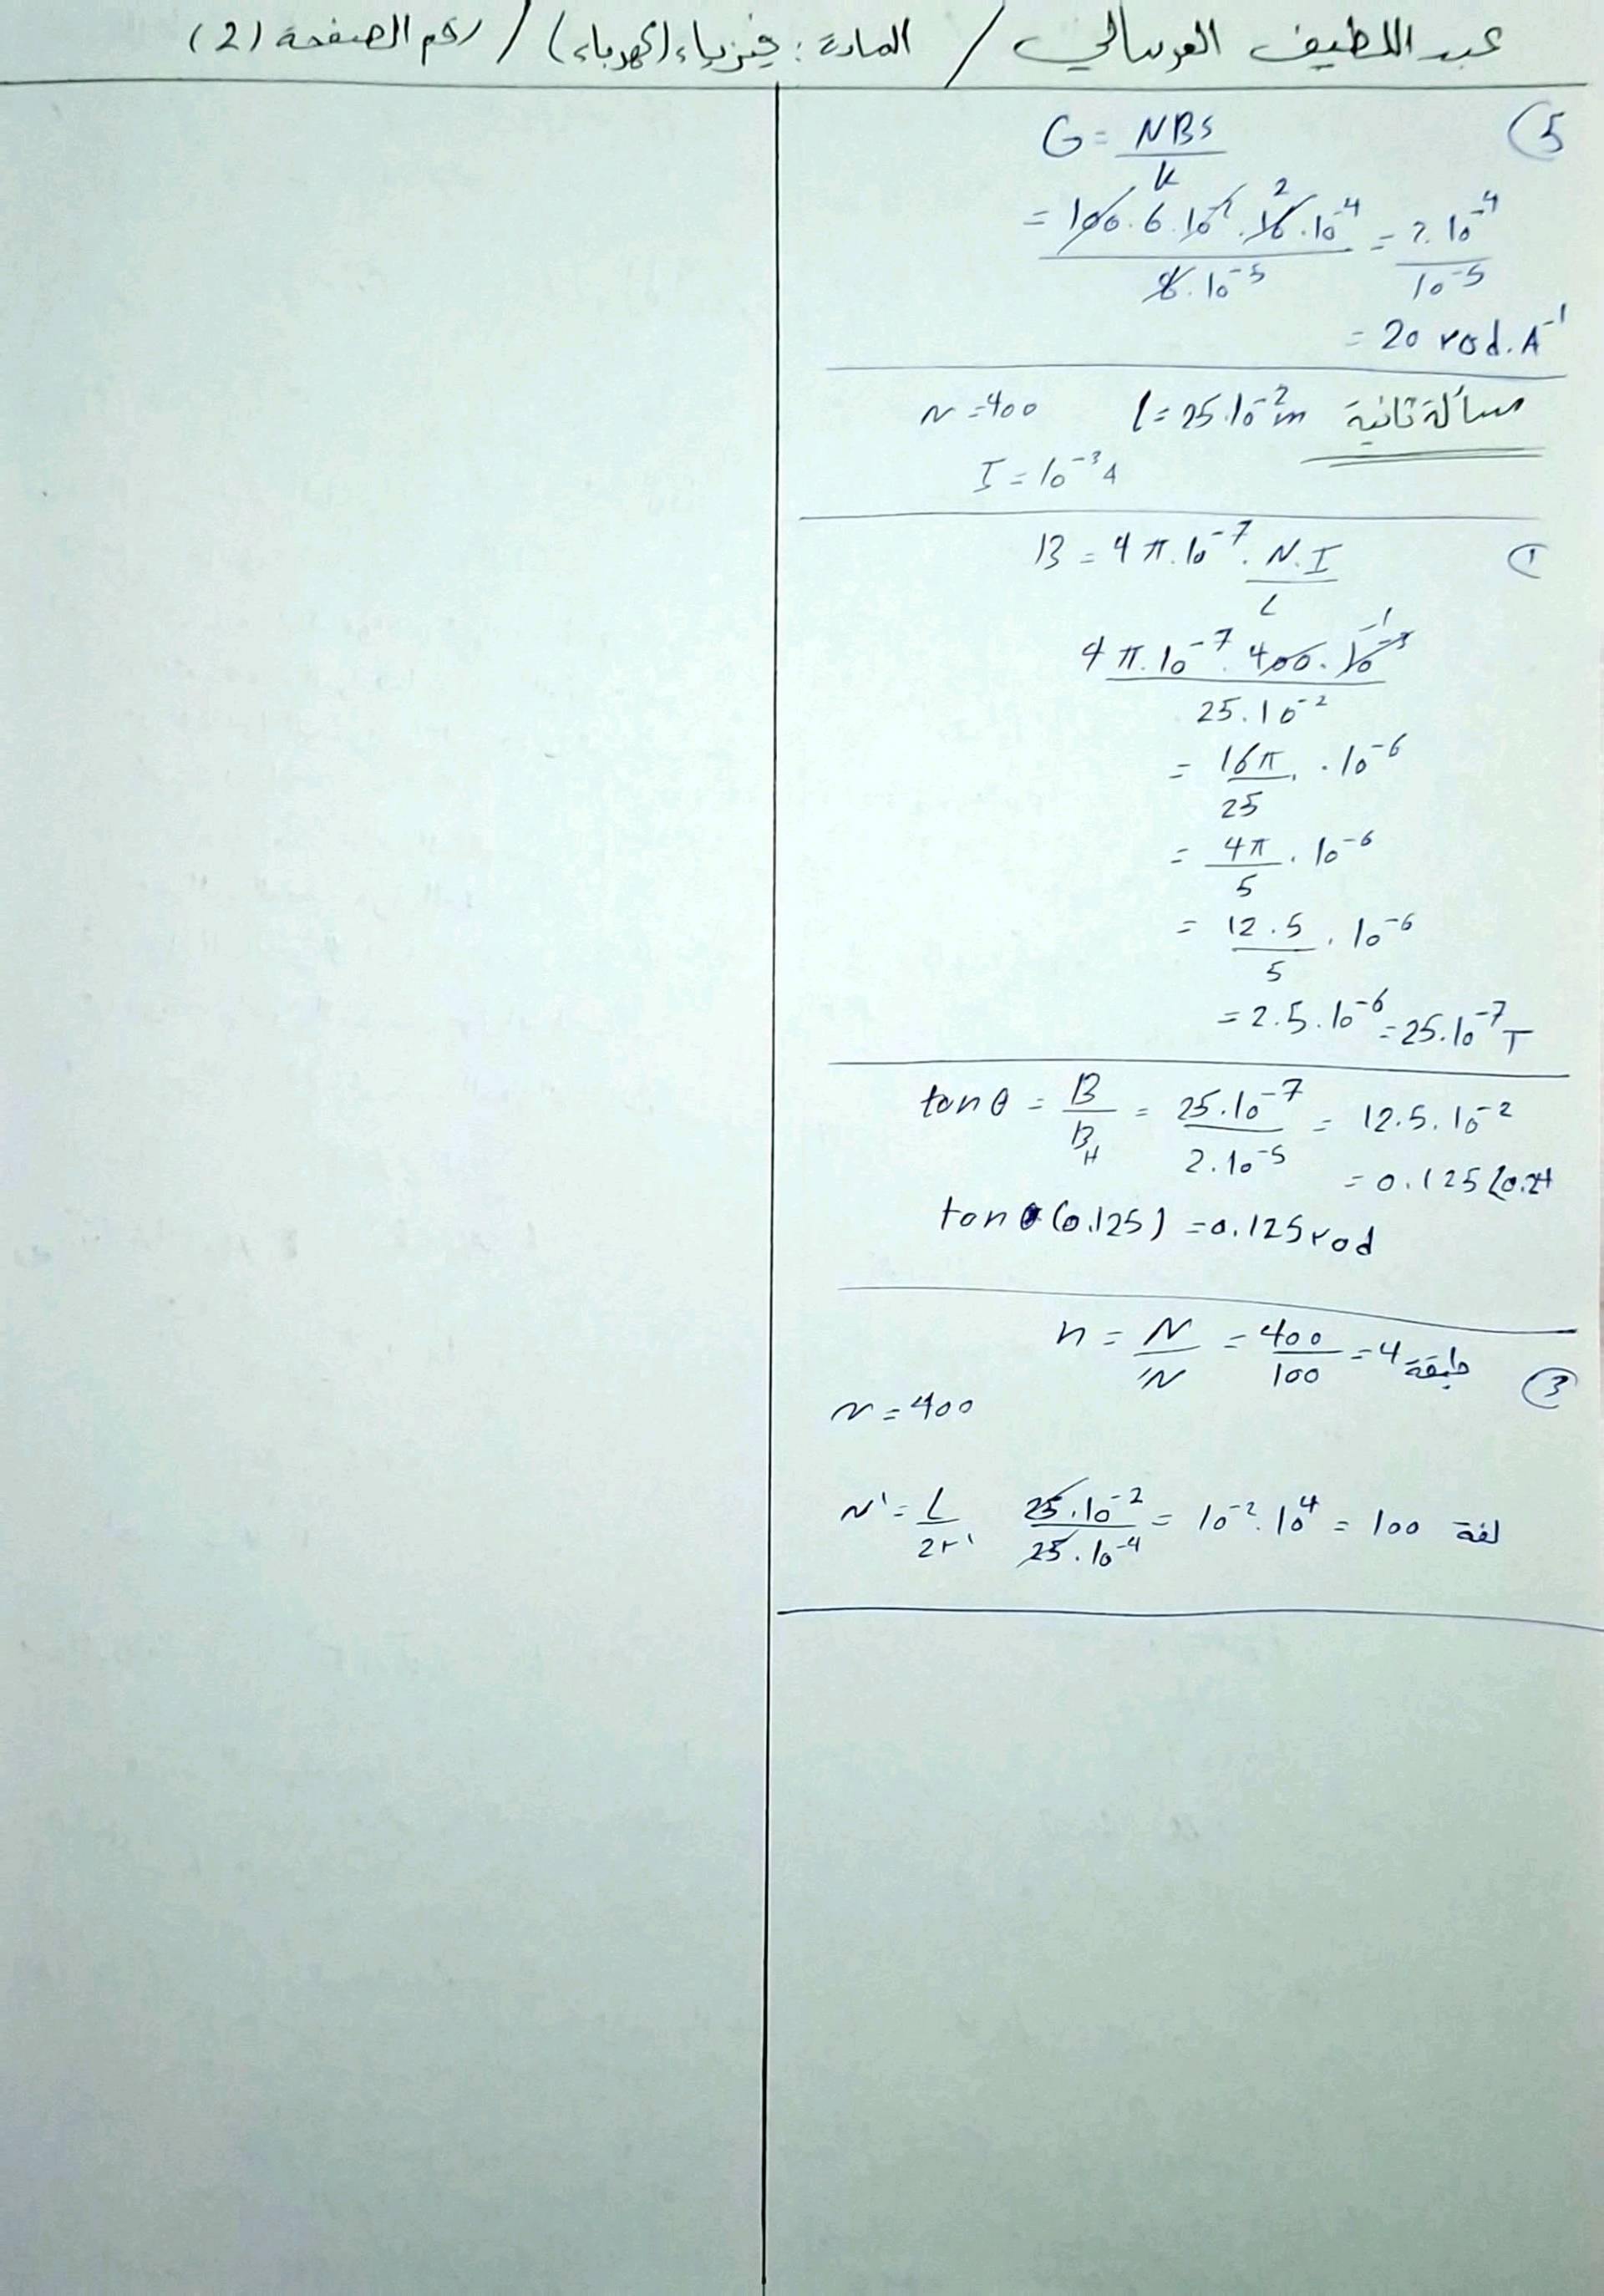 عبد اللطيف العرسالي / المادة: فيزياء (كهرباء) / رقم الصفحة (2)
5)
G = NBs / k
= 100 . 6 . 10⁻² . 16 . 10⁻⁴ / 8 . 10⁻⁵ = 2 . 10⁻⁴ / 10⁻⁵
= 20 rad.A⁻¹
مسألة ثانية l = 25.10⁻² m N = 400
I = 10⁻³ A
1)
B = 4π.10⁻⁷ . N.I / L
4π.10⁻⁷ . 400 . 10⁻³ / 25.10⁻²
= 16π / 25 . 10⁻⁶
= 4π / 5 . 10⁻⁶
= 12.5 / 5 . 10⁻⁶
= 2.5.10⁻⁶ = 25.10⁻⁷ T
tan θ = B / B_H = 25.10⁻⁷ / 2.10⁻⁵ = 12.5.10⁻²
= 0.125 < 0.24
tan (0.125) = 0.125 rad
n = N / N' = 400 / 100 = 4 طبقة
3)
N = 400
N' = L / 2r' 25.10⁻² / 25.10⁻⁴ = 10⁻² . 10⁴ = 100 لفة